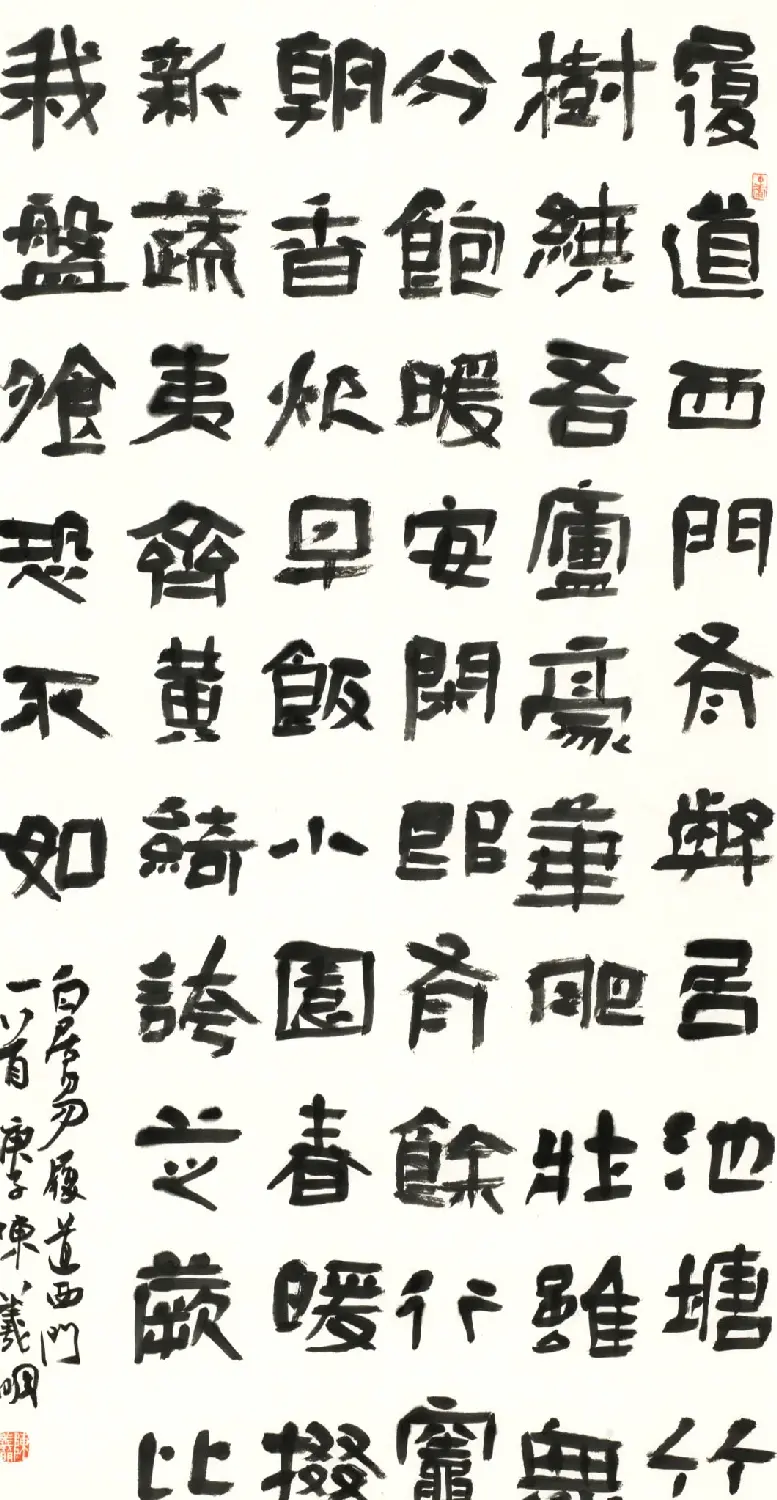 履道西門有弊居池塘竹
樹繞吾廬豪華肥壯雖無
分飽暖安閑即有餘行竈
朝香炊早飯小園春暖掇
新蔬夷齊黃綺誇芝蕨比
我盤飧恐不如
白居易履道西門
一首庚子陳羲明